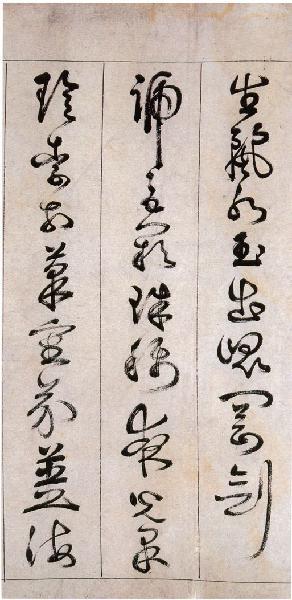 生麗水玉出崑岡劍
號巨闕珠稱夜光果
珍李柰菜重芥薑海